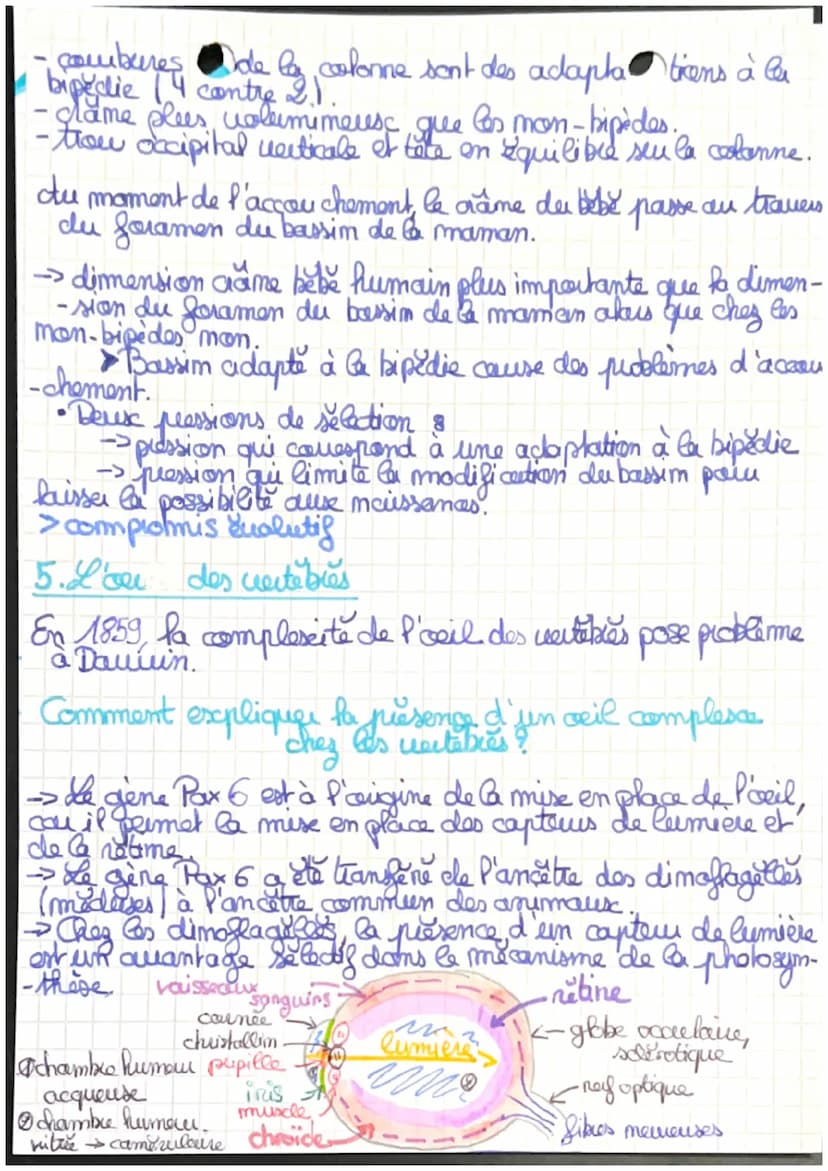 - courbures de la colonne sont des adaptations à la
bipédie (4 contre 2).
- crâne plus volumineux que les non-bipèdes.
- trou occipital verticale et tête en équilibre sur la colonne.
Au moment de l'accouchement, le crâne du bébé passe au travers
du foramen du bassin de la maman.
→ dimension crâne bébé humain plus importante que la dimen-
-sion du foramen du bassin de la maman alors que chez les
non-bipèdes non.
➤ Bassin adapté à la bipédie cause des problèmes d'accou
-chement.
• Deux pressions de sélection :
→ pression qui correspond à une adaptation à la bipédie
→ pression qui limite la modification du bassin pour
laisser la possibilité aux naissances.
> compromis évolutif
5. L'oeil des vertébrés
En 1859, la complexité de l'oeil des vertébrés pose problème
à Darwin.
Comment expliquer la présence d'un oeil complexe
chez les vertébrés ?
→ Le gène Pax 6 est à l'origine de la mise en place de l'oeil,
car il permet la mise en place des capteurs de lumière et
de la rétine.
→ Le gène Pax 6 a été transféré de l'ancêtre des dinoflagellés
(méduses) à l'ancêtre commun des animaux.
→ Chez les dinoflagellés, la présence d'un capteur de lumière
est un avantage sélectif dans le mécanisme de la photosyn-
-thèse.
vaisseaux
sanguins
cornée
christallin
pupille
iris
muscle
chroïde
① chambre humeur
acqueuse
② chambre humeur
vitrée → camérulaire
lumière
①
②
rétine
globe occulaire,
sclérotique
nerf optique
fibres nerveuses